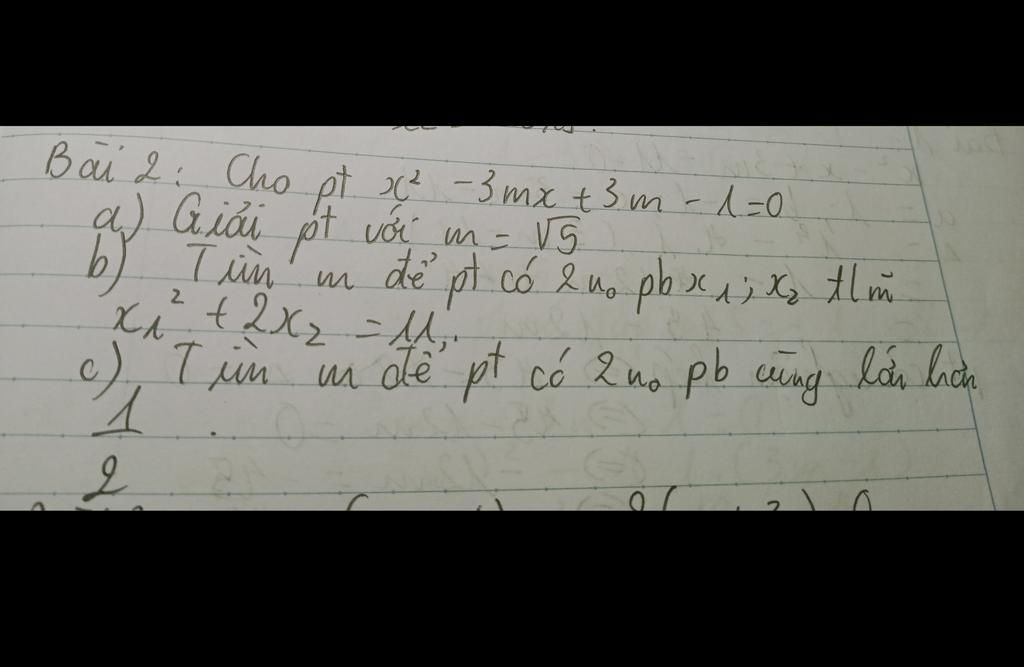 Bài 2: Cho pt x² - 3mx + 3m - 1 = 0
a) Giải pt với m = √5
b) Tìm m để pt có 2 n₀ pb x₁; x₂ tlm
x₁² + 2x₂ = 11.
c) Tìm m để pt có 2 n₀ pb cùng lớn hơn
1/2.